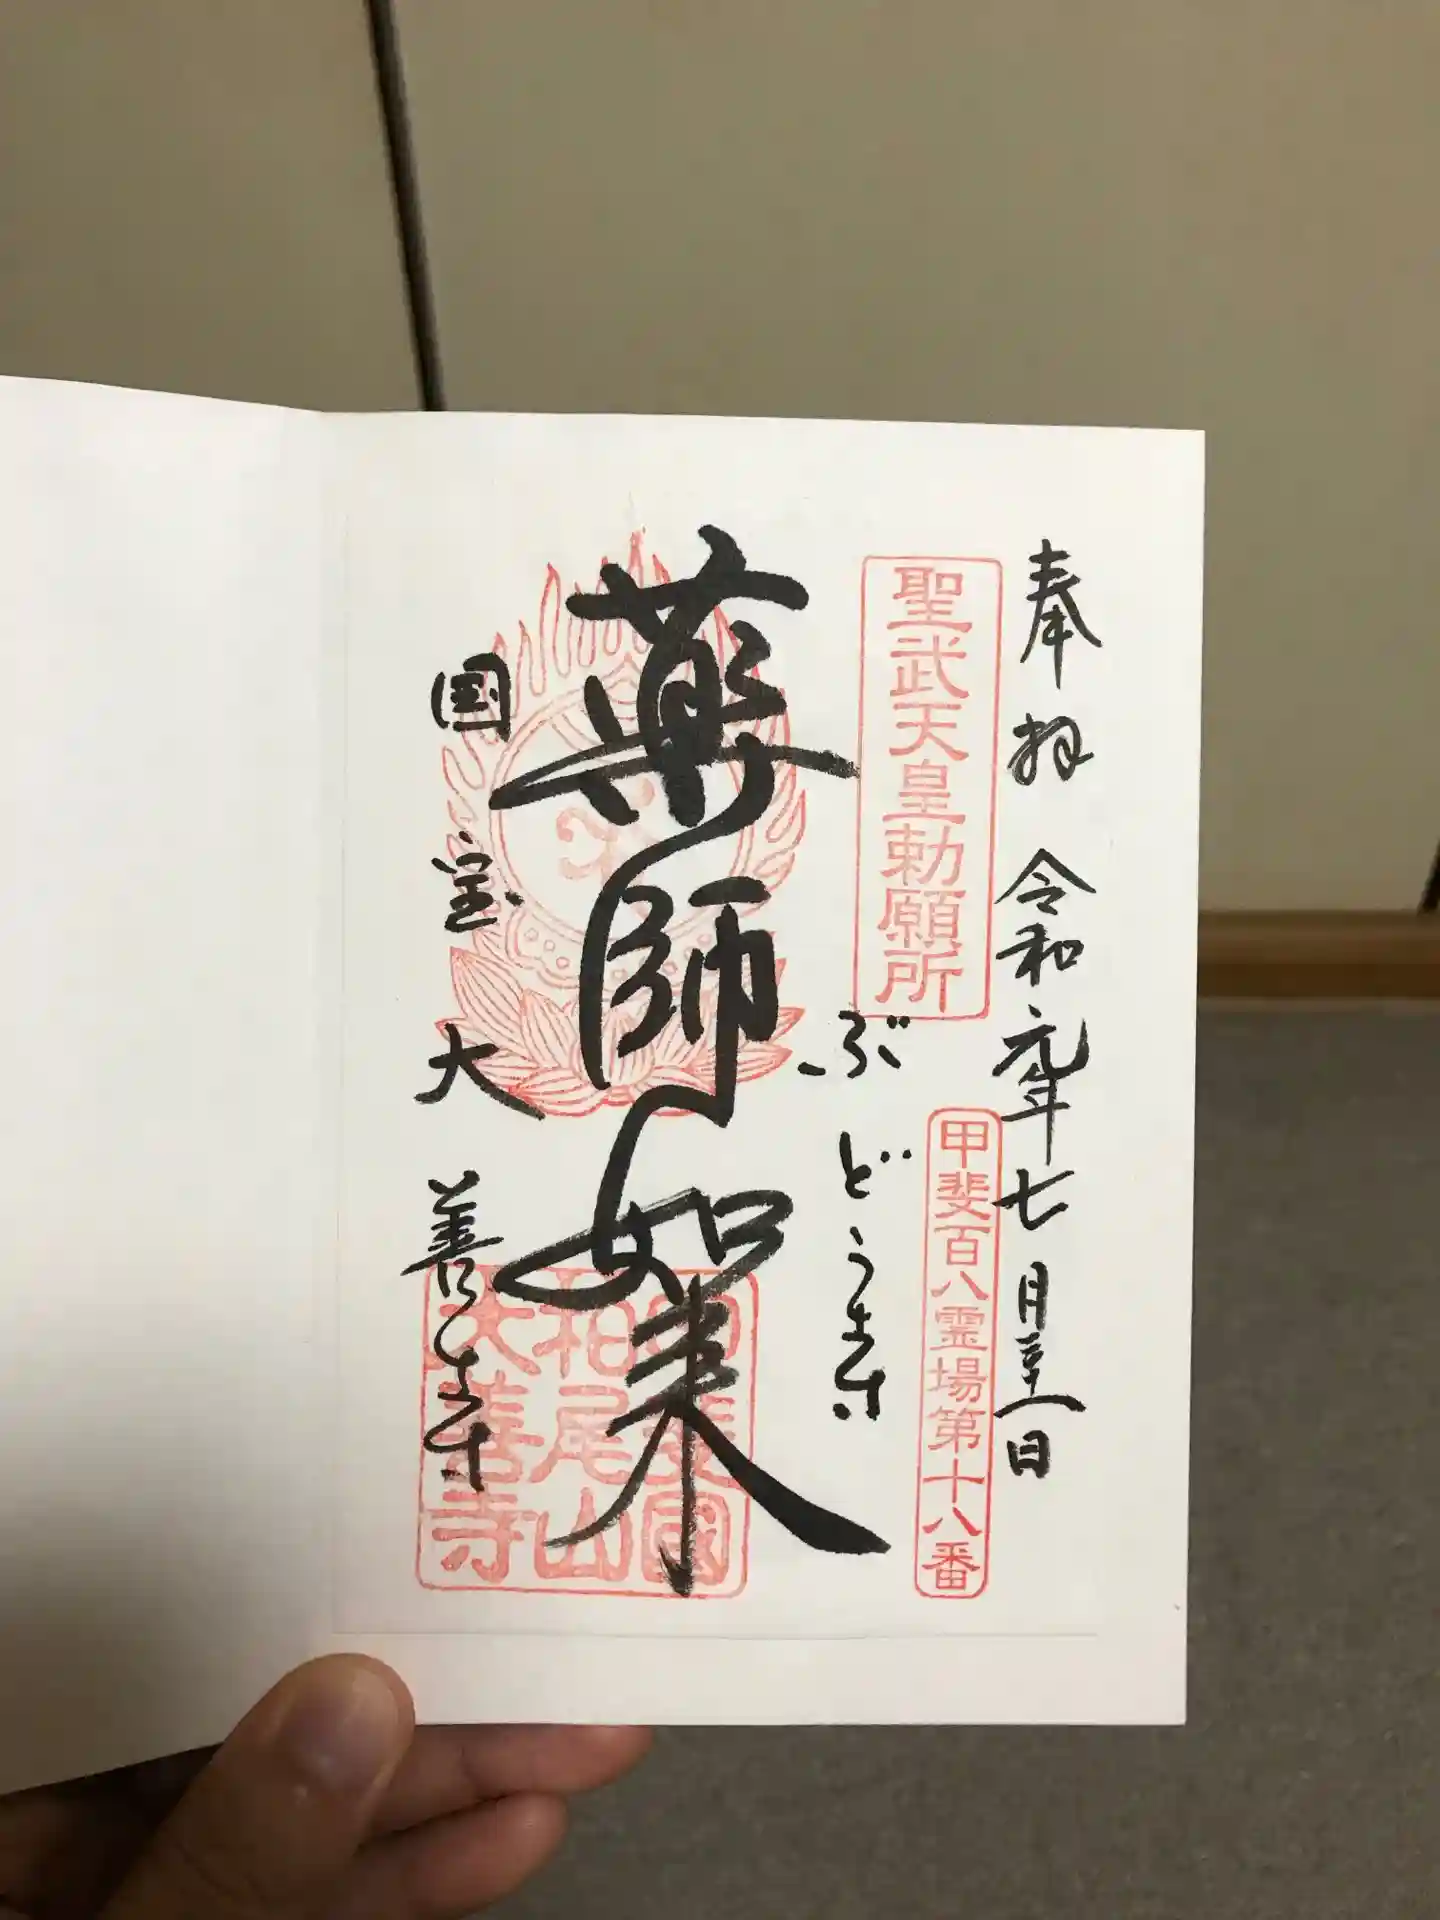 奉拝 令和元年七月三十一日
聖武天皇勅願所
甲斐百八霊場第十八番
ぶどう寺
薬師如来
国宝 大善寺
甲斐國
柏尾山
大善寺